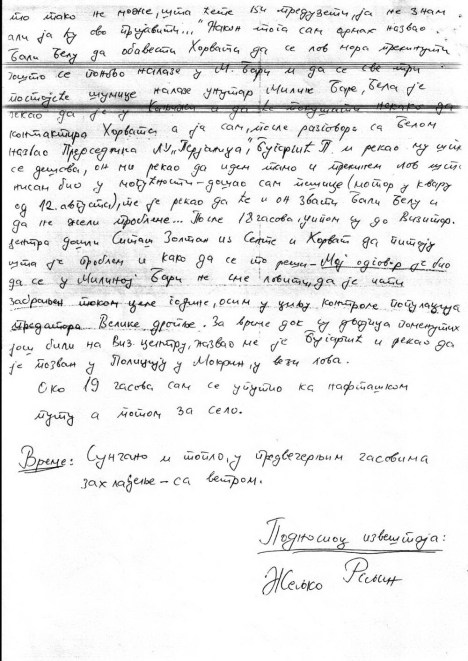 то тако не може, шта ћете ви предузети, ја не знам
али ја ћу ово пријавити..." Након тога сам одмах назвао
Бали Белу да обавести Хорвати да се лов мора прекинути
пошто се поново налазе у М. Бари и да се све три
постојеће шумице налазе унутар Милине Баре, Бела је
рекао да је у и да ће покушати некако да
контактира Хорвата а ја сам, после разговора са Белом
назвао Председника ЛУ „Перјаница", Бугарић П. и рекао му шта
се дешава, он ми рекао да идем тамо и прекинем лов што
нисам био у могућности – дошао сам пешице (мотор у квару
од 12. августа), те је рекао да ће и он звати Бали Белу и
да не жели проблеме... После 18 часова, џипом су до визитор.
центра дошли Ситаш Золтан из Сенте и Хорват да питају
шта је проблем и како да се то реши – Мој одговор је био
да се у Милиној Бари не сме ловити, да је лов
забрањен током целе године, осим у циљу контроле популација
предатора Велике дропље. За време док су двојица поменутих
још били на виз. центру, назвао ме је Бугарић и рекао да
је позван у Полицију у Мокрин, у вези лова.
Око 19 часова сам се упутио ка нафташком
путу а потом за село.
Време: Сунчано и топло, у предвечерњим часовима
захлађење – са ветром.
Подносиоц извештаја:
Жељко